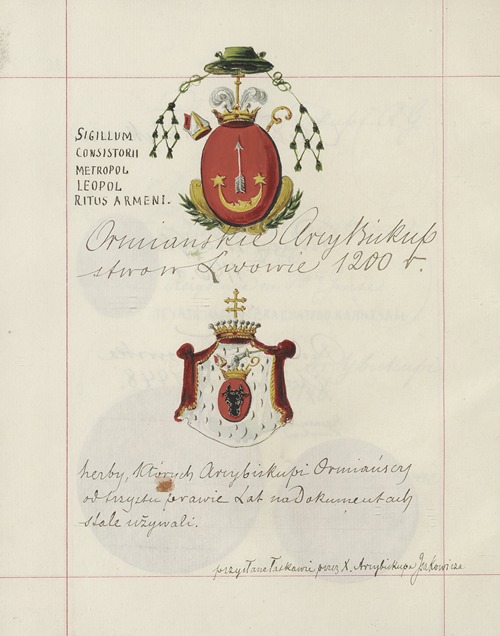 SIGILLUM
CONSISTORII
METROPOL
LEOPOL
RITUS ARMENI.
Ormianskie ArcyBiskup
stwo w Lwowie 1200 r.
herby, których Arcybiskupi Ormiańscy
od trzystu prawie Lat na Dokumentach
stale używali.
przysłane łaskawie przez X. Arcybiskupa